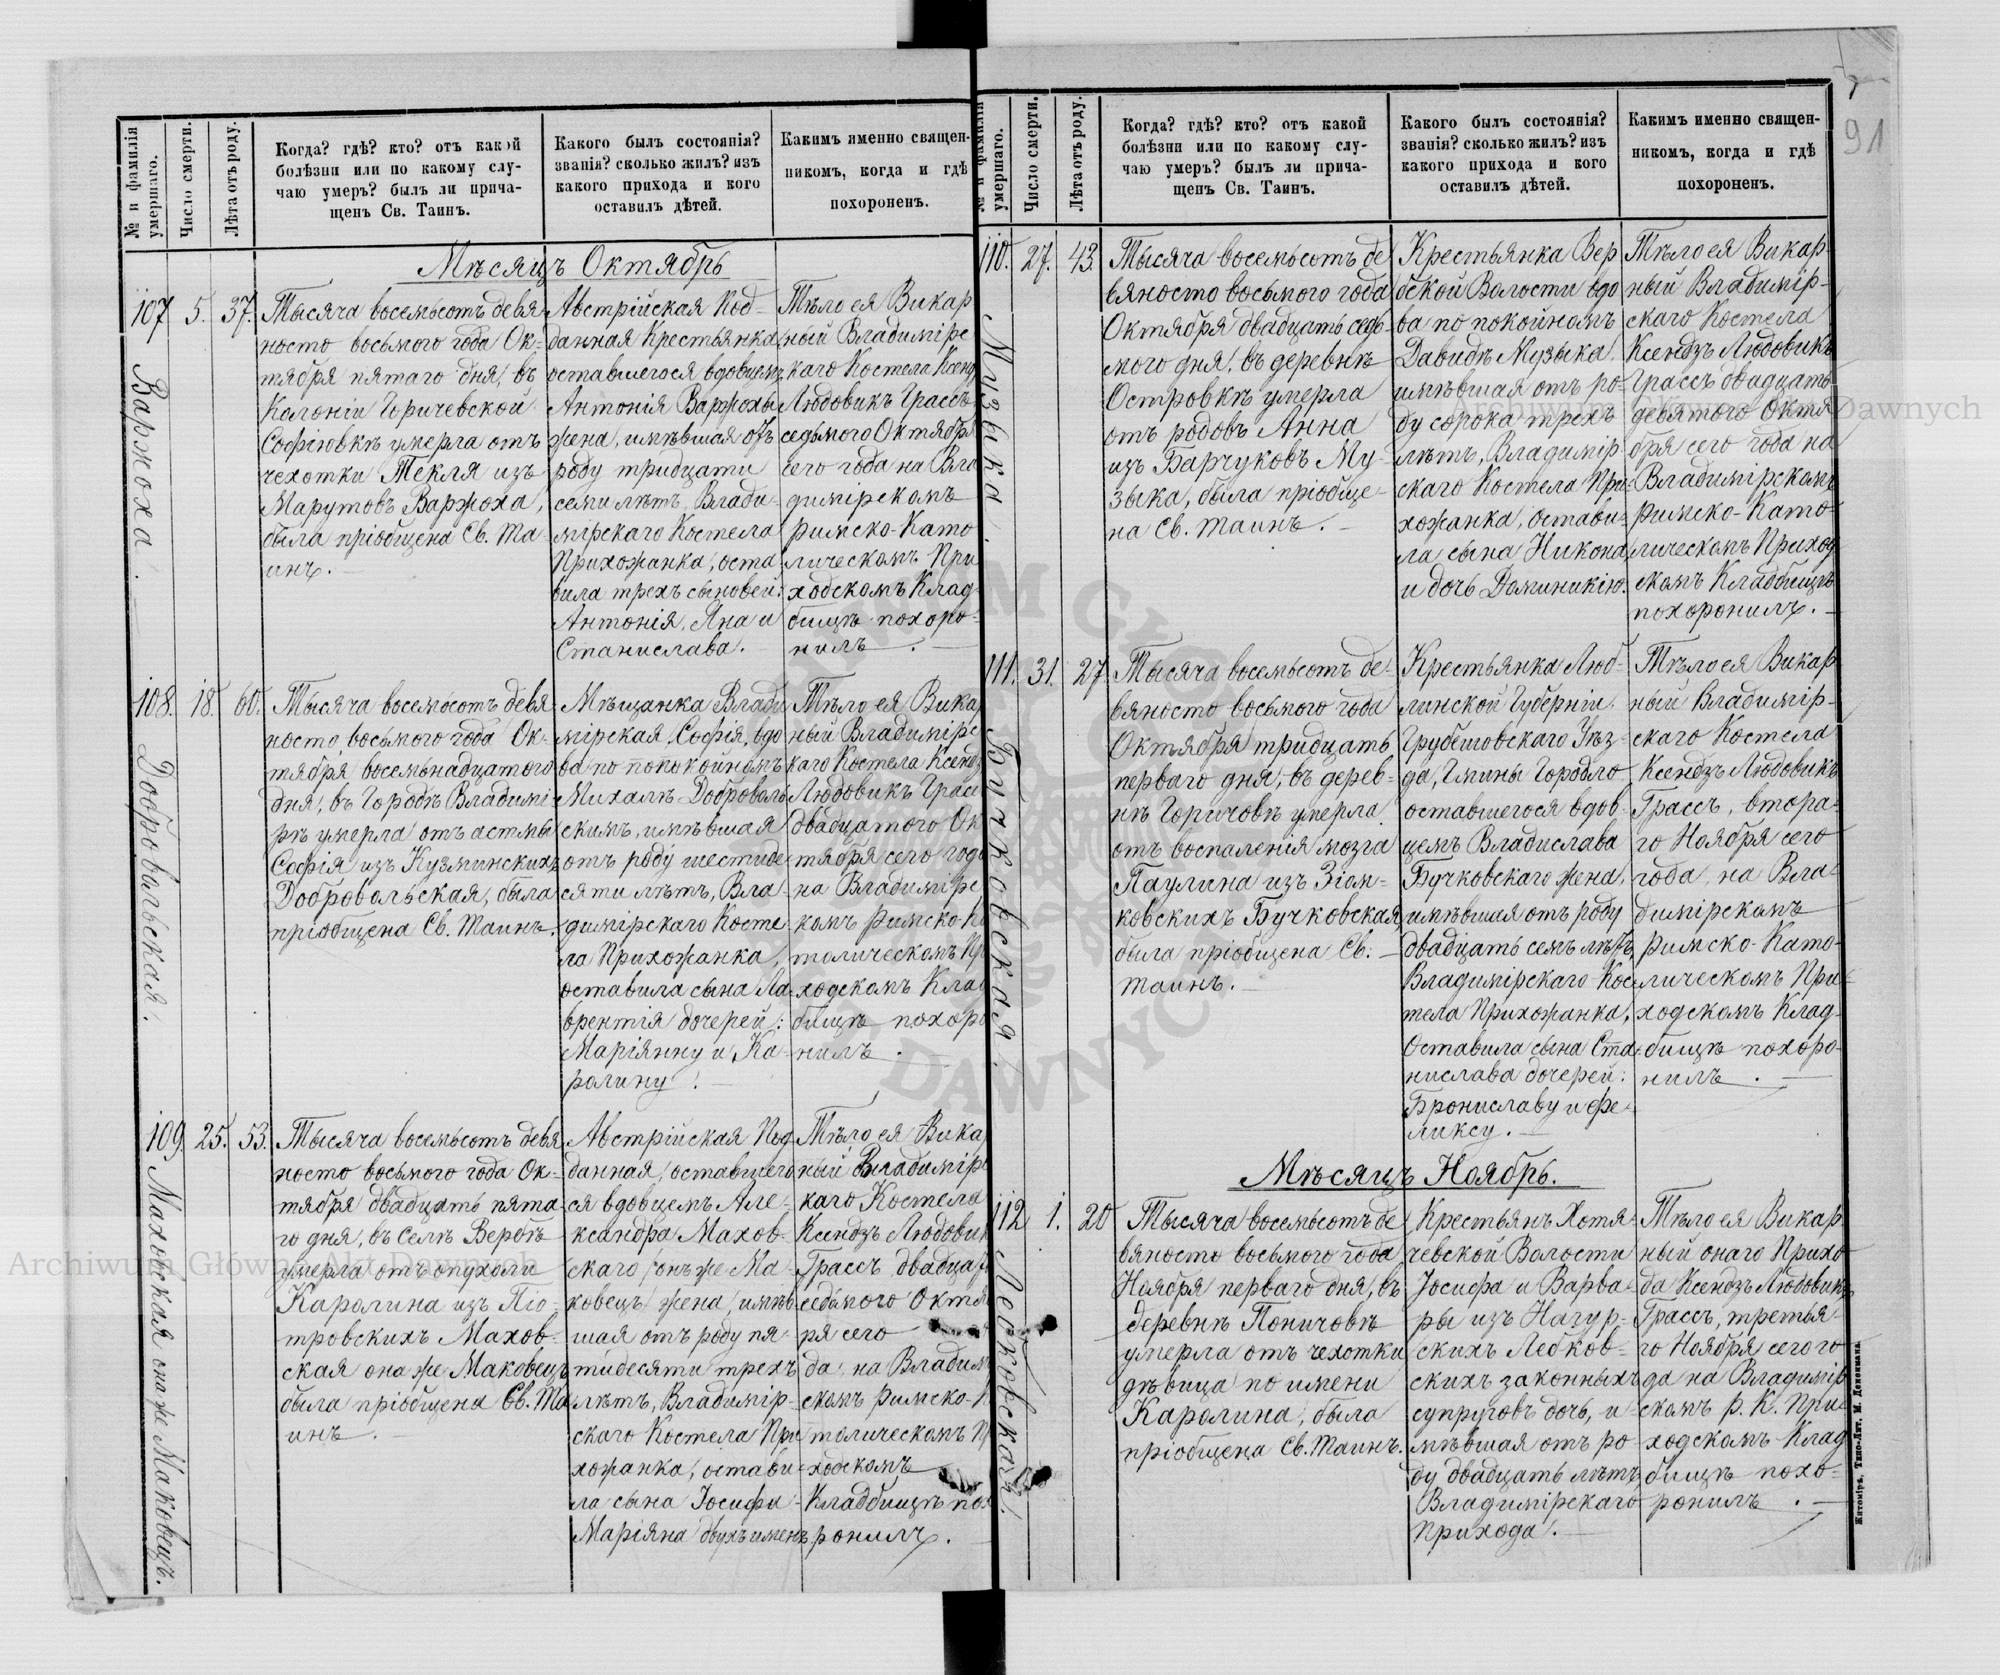 № и фамилія умершаго.
Число смерти.
Лѣта отъ роду.
Когда? гдѣ? кто? отъ какой
болѣзни или по какому слу-
чаю умеръ? былъ ли прича-
щенъ Св. Таинъ.
Какого былъ состоянія?
званія? сколько жилъ? изъ
какого прихода и кого
оставилъ дѣтей.
Какимъ именно священ-
никомъ, когда и гдѣ
похороненъ.
Мѣсяцъ Октябрь
107
Варжоха.
5.
37.
Тысяча восемьсотъ девя-
носто восьмого года Ок-
тября пятаго дня, въ
Колоніи Горичевской
Софіювкѣ умерла отъ
чехотки Текля изъ
Марутовъ Варжоха,
была пріобщена Св. Та-
инъ.
Австрійская Под-
данная Крестьянка
оставшегося вдовцемъ
Антонія Варжохы
жена, имѣвшая отъ
роду тридцати
семи лѣтъ, Влади-
мірскаго Костела
Прихожанка, оста
вила трехъ сыновей:
Антонія, Яна и
Станислава.
Тѣло ея Викар
ный Владимірс
каго Костела Ксенд
Людовикъ Грассъ
седьмого Октября
сего года на Вла
димірскомъ
Римско-Като
лическомъ При
ходскомъ Клад
бищѣ похоро-
нилъ.
108.
Добровольская.
18.
60.
Тысяча восемьсотъ девя-
носто восьмого года Ок-
тября восемьнадцатого
дня, въ Городѣ Владимі-
рѣ умерла отъ астмы
Софія изъ Кузминскихъ
Добровольская, была
пріобщена Св. Таинъ.
Мѣщанка Влади
мірская, Софія, вдо
ва по попокойномъ
Михалѣ Доброволь
скимъ, имѣвшая
отъ роду шестиде-
сяти лѣтъ, Вла-
димірскаго Косте-
ла Прихожанка,
оставила сына Ла-
врентія дочерей:
Маріянну и Ка-
ролину.
Тѣло ея Вика
ный Владимірс
каго Костела Ксенд
Людовикъ Грасс
двадцатого Ок
тября сего года
на Владимірс
комъ Римско-Ка
толическомъ Пр
ходскомъ Клад
бищѣ похоро
нилъ.
109.
Маховская она же Маковецъ.
25.
53.
Тысяча восемьсотъ девя
носто восьмого года Ок-
тября двадцать пята-
го дня, въ селѣ Вербѣ
умерла отъ опухоли
Каролина изъ Піо-
тровскихъ Махов-
ская она же Маковецъ
была пріобщена Св. Та
инъ.
Австрійская Под
данная, оставшего
ся вдовцемъ Але-
ксандра Махов-
скаго онъ же Ма-
ковецъ жена, имѣв
шая отъ роду пя-
тидесяти трехъ
лѣтъ, Владимір-
скаго Костела При
хожанка, остави-
ла сына Іосифа-
Маріяна двухъ именъ
Тѣло ея Вика
ный Владимірс
каго Костела
Ксендзъ Людовик
Грассъ двадцат
седьмого Октя
ря сего
да на Владим
скомъ Римско-К
толическомъ П
ходскомъ
Кладбищѣ пох
ронилъ.
91
№ и фамилія умершаго.
Число смерти.
Лѣта отъ роду.
Когда? гдѣ? кто? отъ какой
болѣзни или по какому слу-
чаю умеръ? былъ ли прича-
щенъ Св. Таинъ.
Какого былъ состоянія?
званія? сколько жилъ? изъ
какого прихода и кого
оставилъ дѣтей.
Какимъ именно священ-
никомъ, когда и гдѣ
похороненъ.
110.
Музыка.
27.
43.
Тысяча восемьсотъ де
вяносто восьмого года
Октября двадцать седь
мого дня, въ деревнѣ
Островкѣ умерла
отъ родовъ Анна
изъ Барчуковъ Му-
зыка, была пріобще-
на Св. Таинъ.
Крестьянка Вер
бской Волости вдо
ва по покойномъ
Давидѣ Музыка,
имѣвшая отъ ро-
ду сорока трехъ
лѣтъ, Владимір
скаго Костела При-
хожанка, остави-
ла сына Никона,
и дочь Доминикію.
Тѣло ея Викар
ный Владимір-
скаго Костела
Ксендзъ Людовикъ
Грассъ двадцать
девятого Октя
бря сего года на
Владимірскомъ
Римско-Като-
лическомъ Приход
скомъ Кладбищѣ
похоронилъ.
111.
Бучковская.
31.
27.
Тысяча восемьсотъ де-
вяносто восьмого года
Октября тридцать
перваго дня, въ дерев-
нѣ Горичовѣ умерла
отъ воспаленія мозга
Паулина изъ Зіом-
ковскихъ Бучковская,
была пріобщена Св.
Таинъ.
Крестьянка Люб-
линской Губерніи
Грубешовскаго Уѣз-
да, Гмины Городло
оставшегося вдов-
цемъ Владислава
Бучковскаго жена,
имѣвшая отъ роду
двадцать семь лѣтъ
Владимірскаго Кос-
тела Прихожанка,
Оставила сына Ста
нислава дочерей:
Брониславу и Фе-
ликсу.
Тѣло ея Викар
ный Владимір-
скаго Костела
Ксендзъ Людовикъ
Грассъ, втора-
го Ноября сего
года, на Вла-
димірскомъ
Римско-Като-
лическомъ При-
ходскомъ Клад-
бищѣ похоро-
нилъ.
Мѣсяцъ Ноябрь.
112
Лебковская.
1.
20
Тысяча восемьсотъ де
вяносто восьмого года
Ноября перваго дня, въ
деревнѣ Поничовѣ
умерла отъ чехотки
дѣвица по имени
Каролина, была
пріобщена Св. Таинъ.
Крестьянъ Хотя-
чевской Волости
Іосифа и Варва-
ры изъ Нагур-
скихъ Лебков-
скихъ законныхъ
супруговъ дочь, и-
мѣвшая отъ ро-
ду двадцать лѣтъ,
Владимірскаго
Прихода.
Тѣло ея Викар
ный онаго Прихо-
да Ксендзъ Людовикъ
Грассъ, третья-
го Ноября сего го
да на Владимір
скомъ Р. К. При-
ходскомъ Клад
бищѣ похо-
ронилъ.
Житоміръ, Типо-Лит. М. Дененмана.
Archiwum Główne Akt Dawnych
Archiwum Główne Akt Dawnych